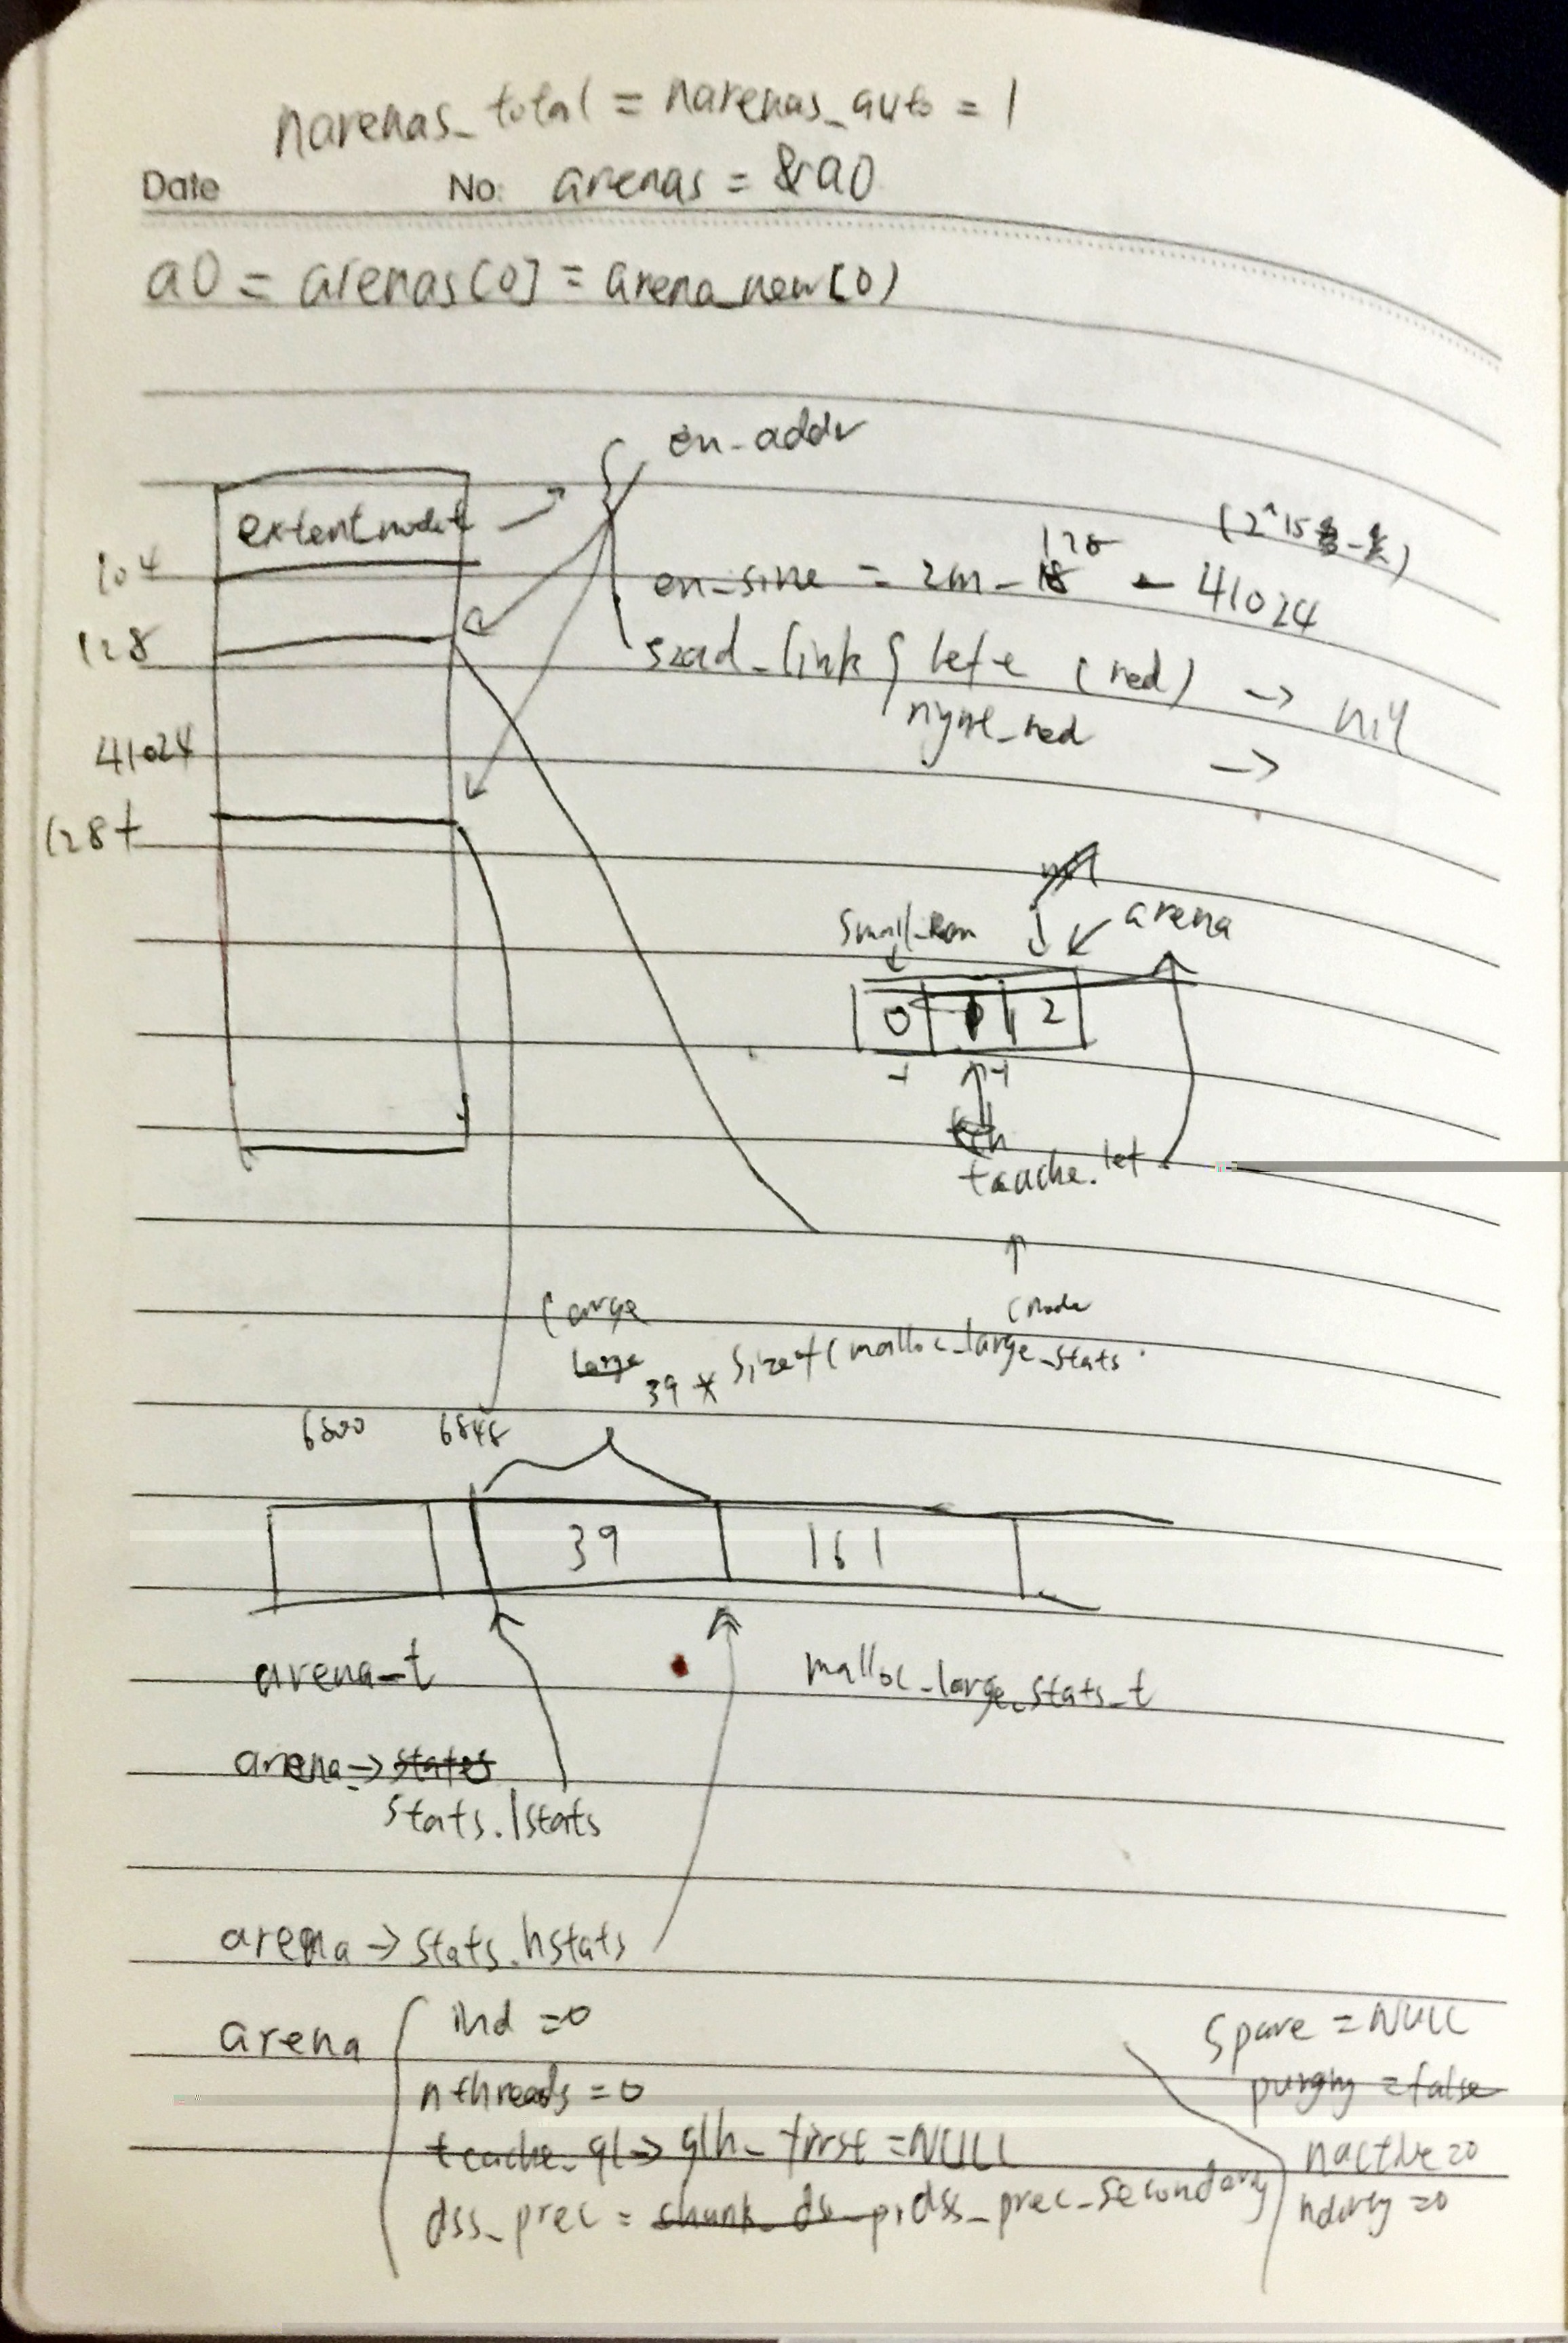 narenas_total = narenas_auto = 1
Date No: arenas = &a0
a0 = arenas[0] = arena_new(0)
en_addr
extent_node_t
104
128
(2^15
128
en_size = 2m - - 41024
szad_link { left (red) → nil
right_red →
41024
128+
small_ran
arena
0 1 2
-1 -1
tcache.let
large
large
39 * sizeof(malloc_large_stats
6800 6848
39 161
arena_t
malloc_large_stats_t
arena → states
stats.lstats
arena → stats.hstats
arena { ind = 0
nthreads = 0
tcache_ql → qlh_first = NULL
dss_prec = chunk_ds_pr dss_prec_secondary
spare = NULL
purging = false
nactive = 0
ndirty = 0